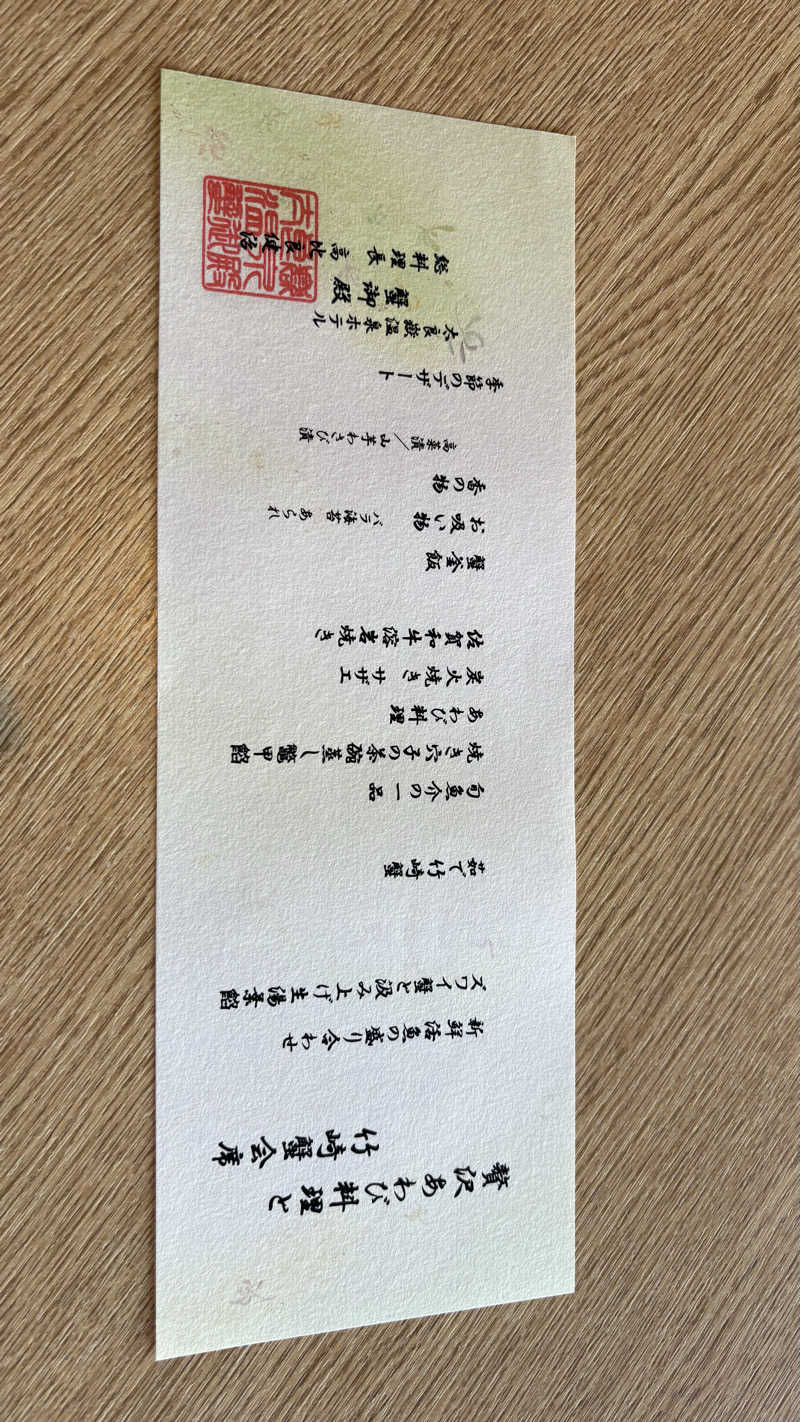 贅沢あわび料理と
竹崎蟹会席
新鮮活魚の盛り合わせ
ズワイ蟹と汲み上げ生湯葉餡
茹で竹崎蟹
旬魚介の一品
焼き穴子の茶碗蒸し鼈甲餡
あわび料理
炭火焼き サザエ
佐賀和牛溶岩焼き
蟹釜飯
お吸い物 バラ海苔 あられ
香の物
高菜漬／山芋わさび漬
季節のデザート
太良嶽温泉ホテル
蟹御殿
総料理長 高比良健治